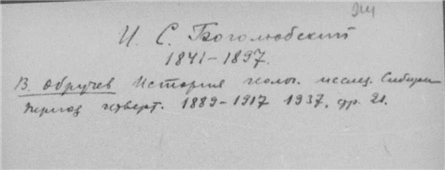 И. С. Боголюбский
1841–1897.
В. Обручев История геолог. исслед. Сибири
Период четверт. 1889–1917 1937, стр. 21.